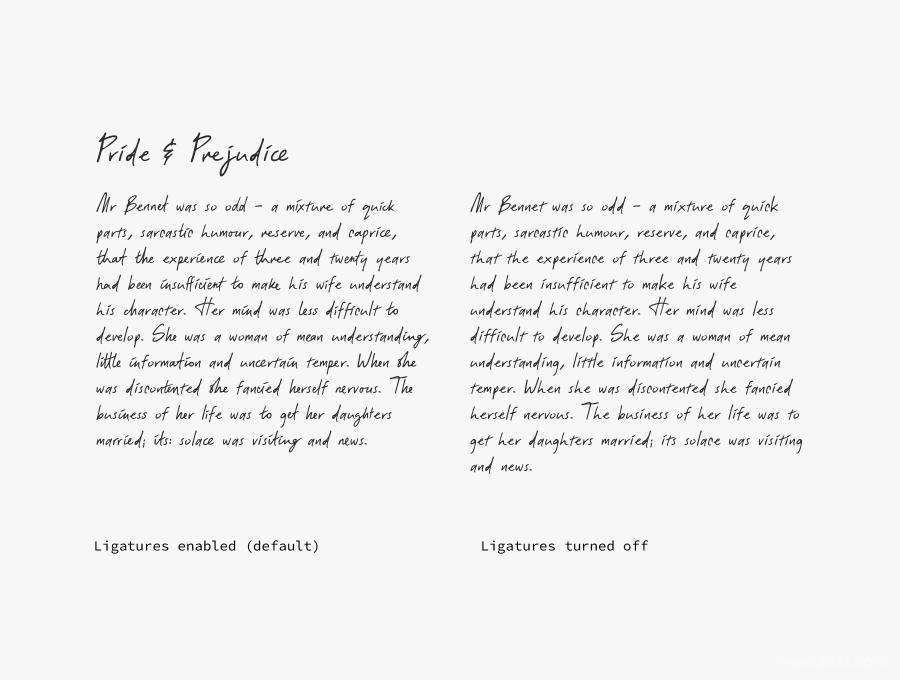 Pride & Prejudice
Mr Bennet was so odd – a mixture of quick
parts, sarcastic humour, reserve, and caprice,
that the experience of three and twenty years
had been insufficient to make his wife understand
his character. Her mind was less difficult to
develop. She was a woman of mean understanding,
little information and uncertain temper. When she
was discontented she fancied herself nervous. The
business of her life was to get her daughters
married; its: solace was visiting and news.
Mr Bennet was so odd – a mixture of quick
parts, sarcastic humour, reserve, and caprice,
that the experience of three and twenty years
had been insufficient to make his wife
understand his character. Her mind was less
difficult to develop. She was a woman of mean
understanding, little information and uncertain
temper. When she was discontented she fancied
herself nervous. The business of her life was to
get her daughters married; its solace was visiting
and news.
Ligatures enabled (default)
Ligatures turned off